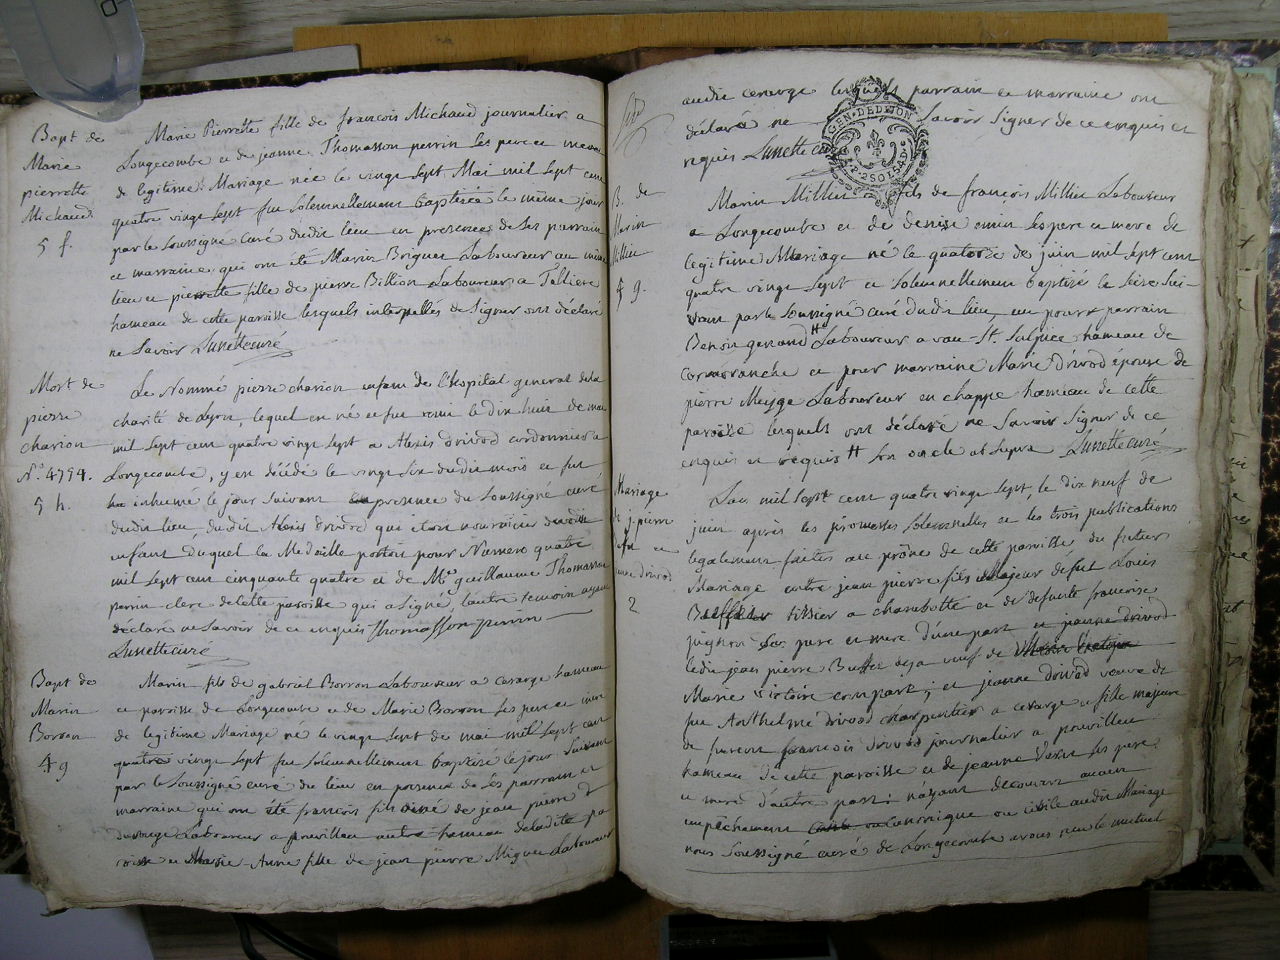 Bapt de
Marie
pierrette
Michaud
5 f.
Marie Pierrette fille de françois Michaud journalier a
Longecombe et de jeanne Thomasson perrin les pere et mere
de legitime Mariage née le vingt Sept Mai mil Sept cent
quatre vingt Sept fut Solemnellement baptisée le même jour
par le Soussigné curé dudit lieu en presence de Ses parrain
et marraine qui ont été Marin Briguet Laboureur au même
lieu et pierrette fille de pierre Billion Laboureur a
hameau de cette paroisse lesquels interpellés de Signer ont déclaré
ne Savoir Lunette curé
Mort de
pierre
charion
N.º 4794.
5 h.
Le Nommé pierre charion enfant de l'hopital general de la
charité de Lyon, lequel en né et fut remi le dix huit de mai
mil Sept cent quatre vingt Sept a Alexis drivod cordonnier a
Longecombe, y en décédé le vingt Six dudit mois et fut
inhumé le jour Suivant en presence du Soussigné curé
dudit lieu, dudit Alexis drivod qui etoit nourricier dudit
enfant duquel la Medaille portoit pour Numero quatre
mil Sept cent cinquante quatre et de M.re guillaume Thomasson
perrin clerc de cette paroisse qui a Signé, l'autre temoin ayant
déclaré ne Savoir de ce enquis Thomasson perrin
Lunette curé
Bapt de
Marin
Borron
49
Marin fils de gabriel Borron Laboureur a cerarge hameau
et paroisse de Longecombe et de Marie Borron Ses pere et mere
de legitime Mariage né le vingt Sept de mai mil Sept cent
quatre vingt Sept fut Solemnellement baptisé le jour Suivant
par le Soussigné curé du lieu en presence de Ses parrain et
marraine qui ont été francois fils ainé de jean pierre
Laboureur a pouvillieu hameau de ladite pa
roisse et Marie-Anne fille de jean pierre Miguet Laboureur
audit cerarge lesquels parrain et marraine ont
déclaré ne Savoir Signer de ce enquis et
requis Lunette curé
GEN. DE DIJON
2 SOLS 4 D.
B. de
Marin
Millier
9.
Marin Millier fils de françois Millier Laboureur
a Longecombe et de denise emin Ses pere et mere de
legitime Mariage né le quatorze de juin mil Sept cent
quatre vingt Sept et Solemnellement baptisé le Seize Sui-
vant par le Soussigné curé dudit lieu, eu pour parrain
Benoit genand # Laboureur a vau-St. Sulpice hameau de
cormaranche et pour marraine Marie drivod épouse de
pierre Laboureur en chappe hameau de cette
paroisse lesquels ont déclaré ne Savoir Signer de ce
enquis et requis # Son oncle ut Supra Lunette curé
Mariage
de j. pierre
et
jeanne drivod
2
L'an mil Sept cent quatre vingt Sept, le dix neuf de
juin après les promesses Solemnelles et les trois publications
legalement faites au prône de cette paroisse du futur
Mariage entre jean pierre fils Majeur de fut Louis
tissier a charabotte et de defunte francoise
Ses pere et mere d'une part et jeanne drivod
ledit jean pierre deja veuf de
Marie Victoire compare; et jeanne drivod veuve de
feu Anthelme drivod charpentier a cerarge et fille majeure
de francois drivod journalier a pouvillieu
hameau de cette paroisse et de jeanne Ses pere
et mere d'autre part; n'ayant decouvert aucun
empêchement canonique ou civile audit Mariage
nous Soussigné curé de Longecombe avons reçu le mutuel